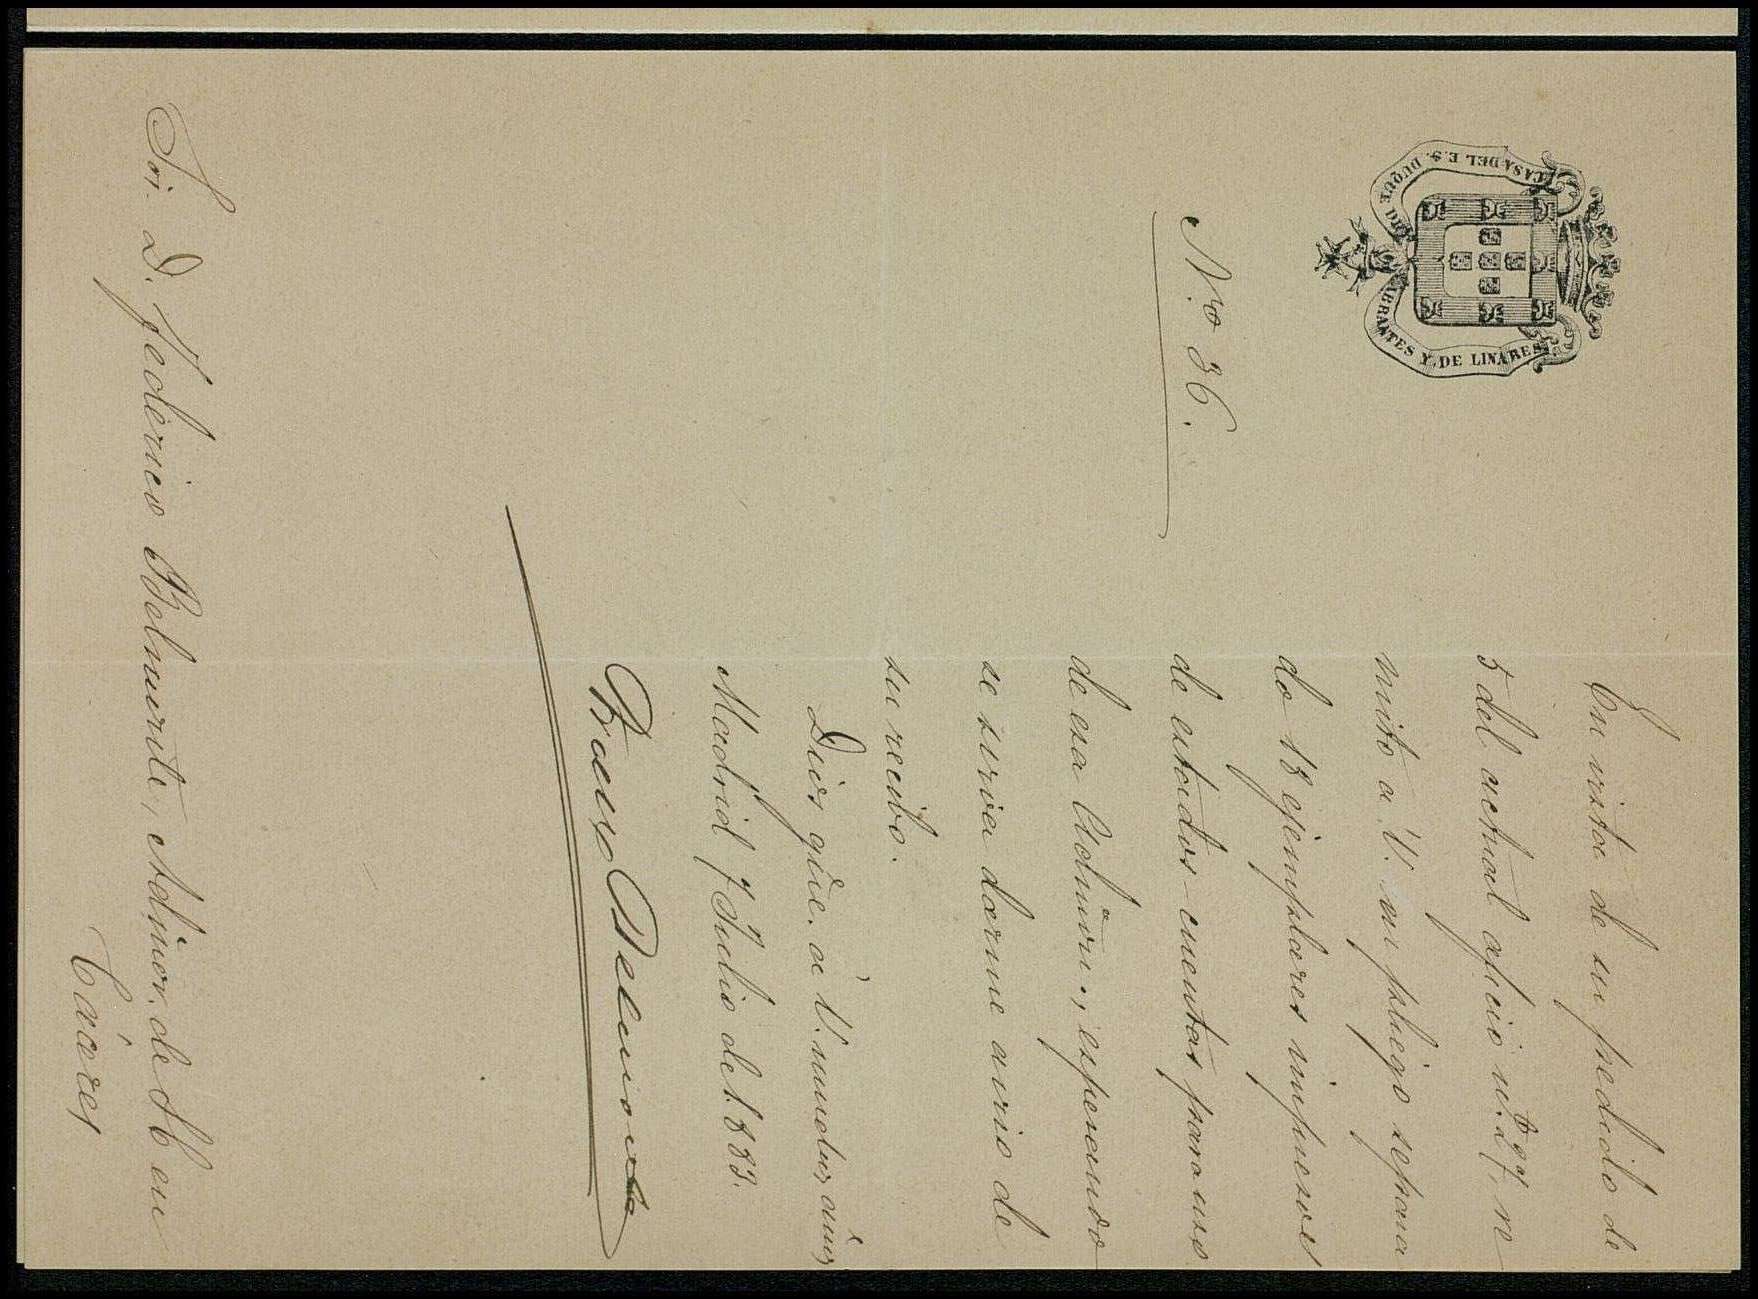 CASA DEL E. S. DUQUE DE ABRANTES Y DE LINARES
Nro 36.
En vista de su pedido de
5 del actual oficio nº 27, re
mito a V. en pliego separa
do 18 ejemplares impresos
de estados-cuentas para uso
de esa Admōn., esperando
se sirva darme aviso de
su recibo.
Dios gūe. á V. muchos años
Madrid 7 Julio de 1.883.
Sr. D. Federico Belmonte, Admor. de S. E. en
Cáceres